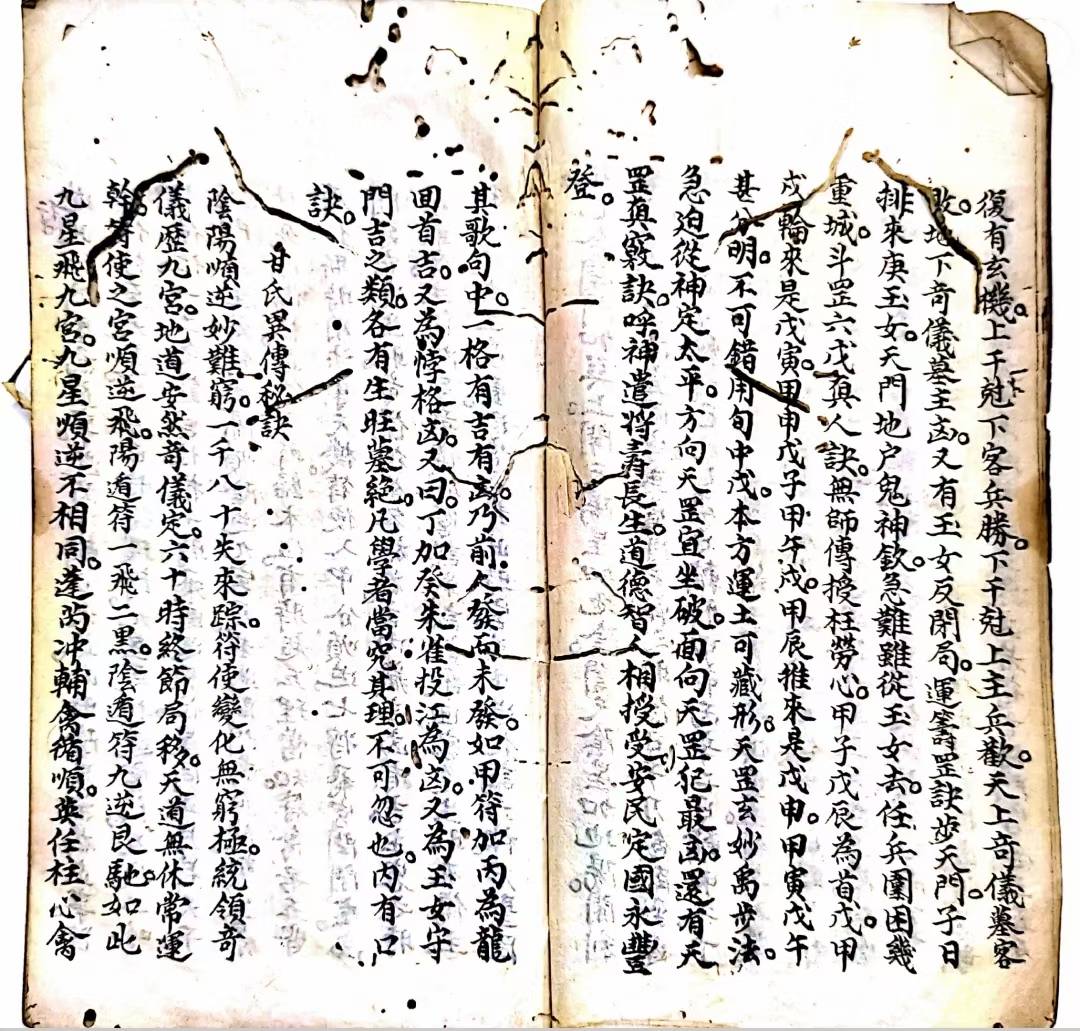 復有玄機。上干尅下客兵勝。下干尅上主兵歡。天上奇儀墓客
敗。地下奇儀墓主凶。又有玉女反閉局。運籌罡訣步天門。子日
排來庚玉女。天門地户鬼神欽。急難雖從玉女去。任兵圍困幾
重城。斗罡六戊真人訣。無師傳授枉勞心。甲子戊辰為首戊。甲
戌輪來是戊寅。甲申戊子甲午戌。甲辰推來是戊申。甲寅戊午
甚分明。不可錯用旬中戊。本方運土可藏形。天罡玄妙禹步法。
急迫從神定太平。方向天罡宜坐破。面向天罡犯最凶。還有天
罡真竅訣。呼神遣將壽長生。道德智人相授受。安民定國永豐
登。
其歌句中。一格有吉有凶。乃前人發而未發。如甲符加丙為龍
囬首吉。又為悖格凶。又曰。丁加癸朱雀投江為凶。又為玉女守
門吉之類。各有生旺墓絶。凡學者當究其理。不可忽也。内有口
訣。
甘氏異傳秘訣
陰陽順逆妙難窮。一千八十失來踪。符使變化無窮極。統領奇
儀歷九宮。地道安然奇儀定。六十時終節局移。天道無休常運
幹。符使之宮順逆飛。陽遁符一飛二黑。陰遁符九逆艮馳。如此
九星飛九宮。九星順逆不相同。蓬芮冲輔禽循順。英任柱心禽